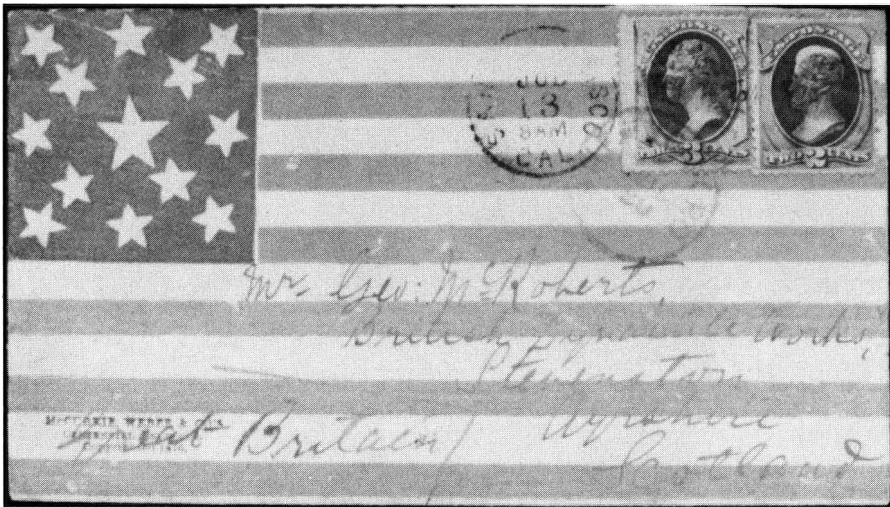 JUL
13
8AM
CAL
Mr Geo: McRoberts,
British Dynamite Works,
Stevenston
Ayrshire
Scotland
Great Britain